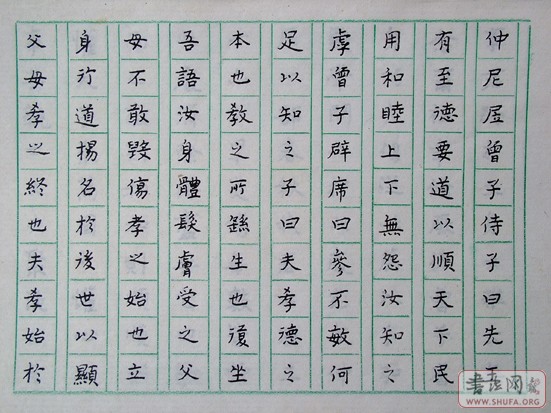 仲尼凥曾子侍子曰先王
有至德要道以順天下民
用和睦上下無怨汝知之
虖曾子辟席曰參不敏何
足以知之子曰夫孝德之
本也教之所繇生也復坐
吾語汝身體髮膚受之父
母不敢毀傷孝之始也立
身行道揚名於後世以顯
父母孝之終也夫孝始於
书法网
WWW.SHUFA.ORG